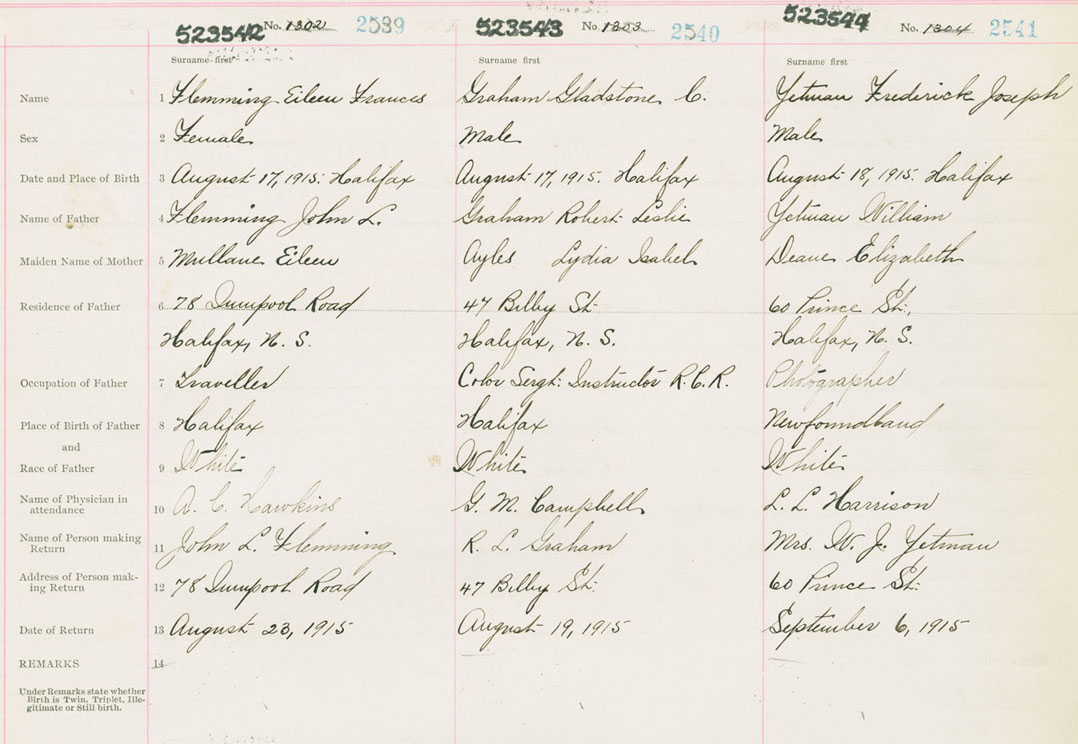 523542 No. 1302 2539 523543 No. 1303 2540 523544 No. 1304 2541
Surname first Surname first Surname first
Name 1 Flemming Eileen Frances Graham Gladstone C. Yetman Frederick Joseph
Sex 2 Female Male Male
Date and Place of Birth 3 August 17, 1915. Halifax August 17, 1915. Halifax August 18, 1915. Halifax
Name of Father 4 Flemming John L. Graham Robert Leslie Yetman William
Maiden Name of Mother 5 Mullane Eileen Ayles Lydia Isabel Deane Elizabeth
Residence of Father 6 78 Road 47 Bilby St. 60 Prince St.,
Halifax, N. S. Halifax, N. S. Halifax, N. S.
Occupation of Father 7 Traveller Color Sergt. Instructor R.C.R. Photographer
Place of Birth of Father 8 Halifax Halifax Newfoundland
and
Race of Father 9 White White White
Name of Physician in
attendance 10 A. C. Hawkins G. M. Campbell L. L. Harrison
Name of Person making
Return 11 John L. Flemming R. L. Graham Mrs. W. J. Yetman
Address of Person mak-
ing Return 12 78 Road 47 Bilby St. 60 Prince St.
Date of Return 13 August 23, 1915 August 19, 1915 September 6, 1915
REMARKS 14
Under Remarks state whether
Birth is Twin, Triplet, Ille-
gitimate or Still birth.